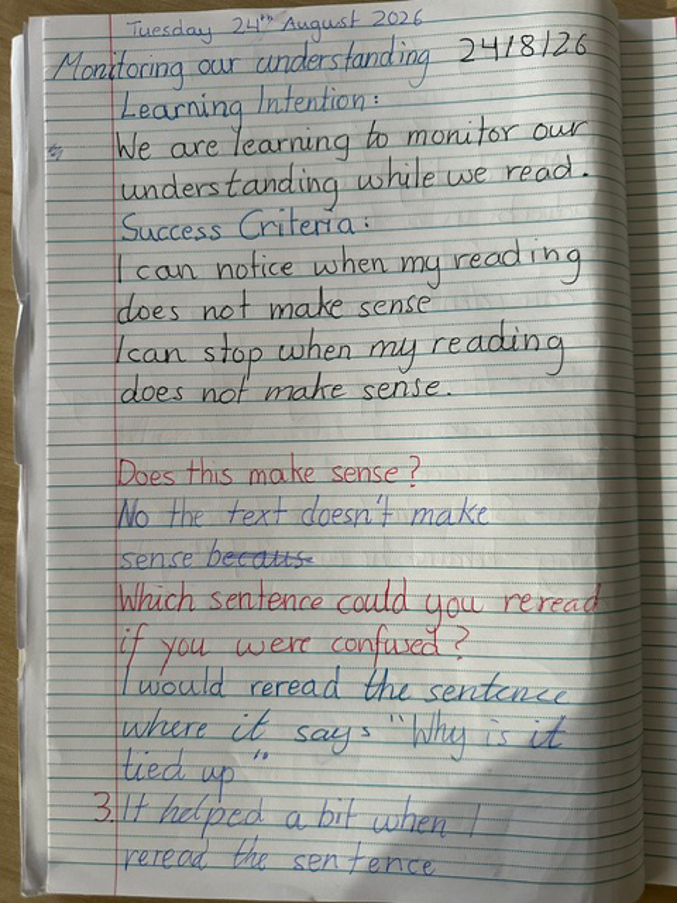 Tuesday 24th August 2026
Monitoring our understanding 24/8/26
Learning Intention:
We are learning to monitor our
understanding while we read.
Success Criteria:
I can notice when my reading
does not make sense
I can stop when my reading
does not make sense.
Does this make sense?
No the text doesn't make
sense becaus
Which sentence could you reread
if you were confused?
I would reread the sentence
where it says "Why is it
tied up"
3. It helped a bit when I
reread the sentence